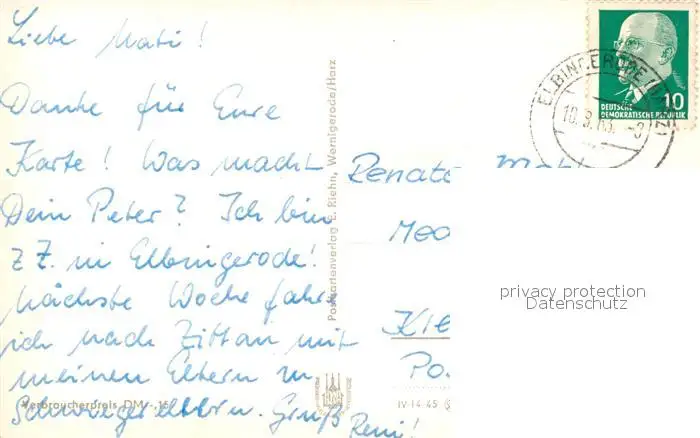 Liebe Mati!
Danke für Eure
Karte! Was macht
Dein Peter? Ich bin
z Z. in Elbingerode!
Nächste Woche fahre
ich nach Zittau mit
meinen Eltern u
Schwiegereltern. Gruß
Reni!
Verbraucherpreis DM -,15
Postkartenverlag E. Riehn, Wernigerode/Harz
IV-14-45
Renate
Med
Kle
Po.
ELBINGERODE (HARZ)
10.9.63.-8
10
DEUTSCHE
DEMOKRATISCHE REPUBLIK
privacy protection
Datenschutz